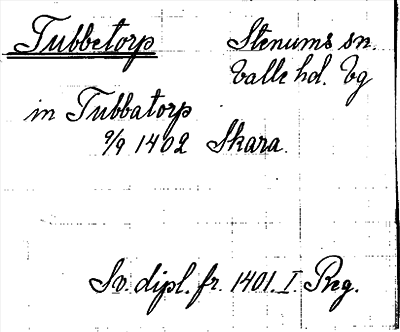 Tubbetorp
Stenums sn.
Valle hd. Vg
in Tubbatorp
9/9 1402 Skara.
Sv. dipl. fr. 1401. I. Reg.